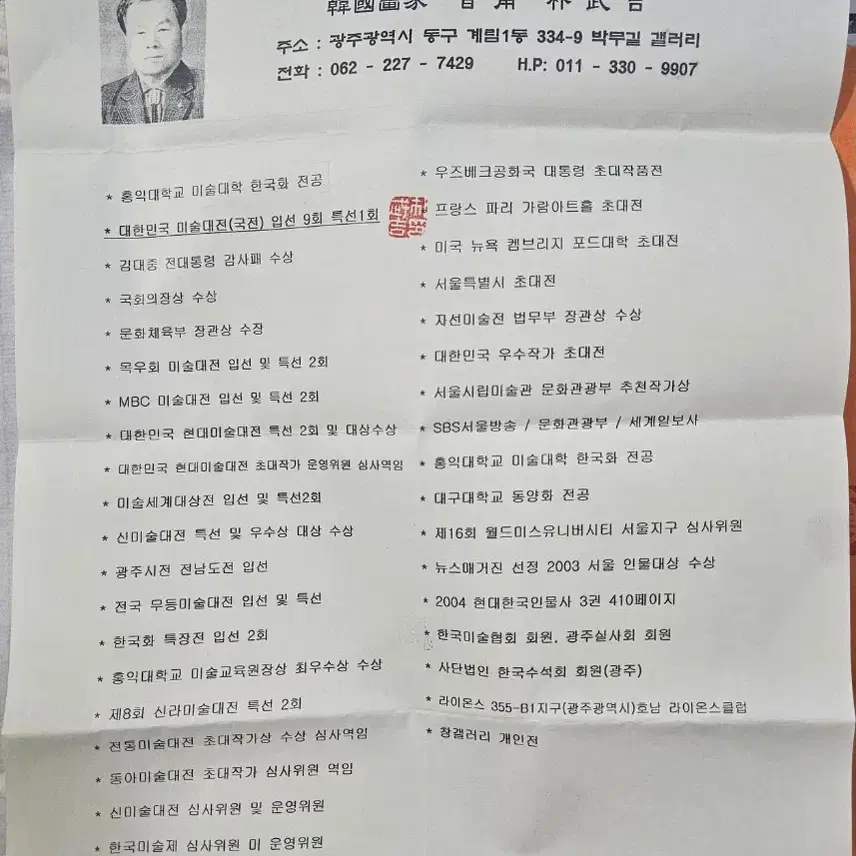 韓國畵家 香甫 朴武吉
주소 : 광주광역시 동구 계림1동 334-9 박무길 갤러리
전화 : 062 - 227 - 7429 H.P: 011 - 330 - 9907
* 홍익대학교 미술대학 한국화 전공
* 대한민국 미술대전(국전) 입선 9회 특선1회
* 김대중 전대통령 감사패 수상
* 국회의장상 수상
* 문화체육부 장관상 수장
* 목우회 미술대전 입선 및 특선 2회
* MBC 미술대전 입선 및 특선 2회
* 대한민국 현대미술대전 특선 2회 및 대상수상
* 대한민국 현대미술대전 초대작가 운영위원 심사역임
* 미술세계대상전 입선 및 특선2회
* 신미술대전 특선 및 우수상 대상 수상
* 광주시전 전남도전 입선
* 전국 무등미술대전 입선 및 특선
* 한국화 특장전 입선 2회
* 홍익대학교 미술교육원장상 최우수상 수상
* 제8회 신라미술대전 특선 2회
* 전통미술대전 초대작가상 수상 심사역임
* 동아미술대전 초대작가 심사위원 역임
* 신미술대전 심사위원 및 운영위원
* 한국미술제 심사위원 미 운영위원
* 우즈베크공화국 대통령 초대작품전
* 프랑스 파리 가람아트홀 초대전
* 미국 뉴욕 켐브리지 포드대학 초대전
* 서울특별시 초대전
* 자선미술전 법무부 장관상 수상
* 대한민국 우수작가 초대전
* 서울시립미술관 문화관광부 추천작가상
* SBS서울방송 / 문화관광부 / 세계일보사
* 홍익대학교 미술대학 한국화 전공
* 대구대학교 동양화 전공
* 제16회 월드미스유니버시티 서울지구 심사위원
* 뉴스매거진 선정 2003 서울 인물대상 수상
* 2004 현대한국인물사 3권 410페이지
* 한국미술협회 회원, 광주실사회 회원
* 사단법인 한국수석회 회원(광주)
* 라이온스 355-B1지구(광주광역시)호남 라이온스클럽
* 창갤러리 개인전